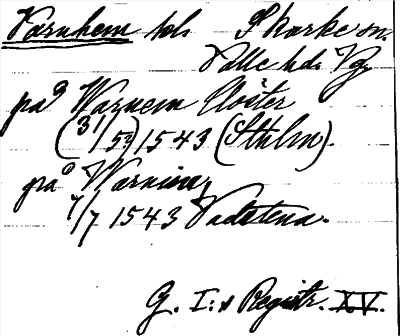 Varnhem kls Skarke sn.
Valle hd. Vg
på Warnem Closter
(31/5) 1543 (Sthlm).
på Warnem,
7/7 1543 Vadstena.
G. I:s Registr. XV.